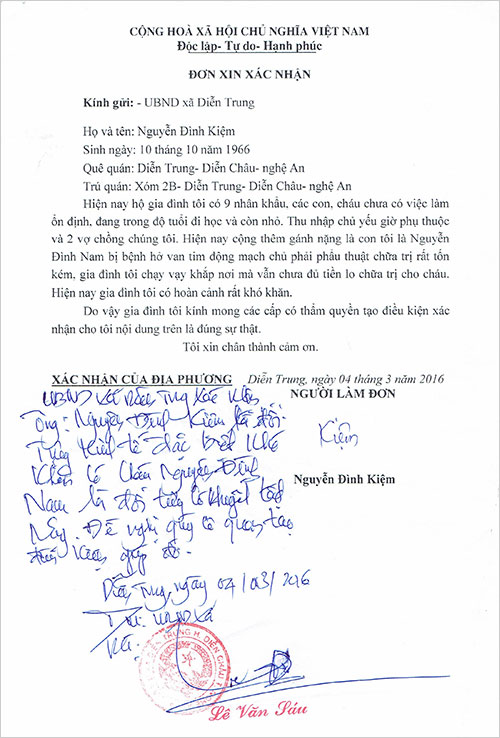 CỘNG HOÀ XÃ HỘI CHỦ NGHĨA VIỆT NAM
Độc lập- Tự do- Hạnh phúc
ĐƠN XIN XÁC NHẬN
Kính gửi: - UBND xã Diễn Trung
Họ và tên: Nguyễn Đình Kiệm
Sinh ngày: 10 tháng 10 năm 1966
Quê quán: Diễn Trung- Diễn Châu- nghệ An
Trú quán: Xóm 2B- Diễn Trung- Diễn Châu- nghệ An
Hiện nay hộ gia đình tôi có 9 nhân khẩu, các con, cháu chưa có việc làm
ổn định, đang trong độ tuổi đi học và còn nhỏ. Thu nhập chủ yếu giờ phụ thuộc
và 2 vợ chồng chúng tôi. Hiện nay cộng thêm gánh nặng là con tôi là Nguyễn
Đình Nam bị bệnh hở van tim động mạch chủ phải phẩu thuật chữa trị rất tốn
kém, gia đình tôi chạy vạy khắp nơi mà vẫn chưa đủ tiền lo chữa trị cho cháu.
Hiện nay gia đình tôi có hoàn cảnh rất khó khăn.
Do vậy gia đình tôi kính mong các cấp có thẩm quyền tạo điều kiện xác
nhận cho tôi nội dung trên là đúng sự thật.
Tôi xin chân thành cảm ơn.
XÁC NHẬN CỦA ĐỊA PHƯƠNG Diễn Trung, ngày 04 tháng 3 năm 2016
NGƯỜI LÀM ĐƠN
UBND xã Diễn Trung xác nhận
Ông: Nguyễn Đình Kiệm là đối
tượng kinh tế đặc biệt khó
khăn có cháu Nguyễn Đình
Nam là đối tượng có khuyết tật
này. Đề nghị quý cơ quan tạo
điều kiện giúp đỡ.
Kiệm
Nguyễn Đình Kiệm
Diễn Trung, ngày 04/03/2016
UBND xã
DIỄN TRUNG H. DIỄN CHÂU
Lê Văn Sáu